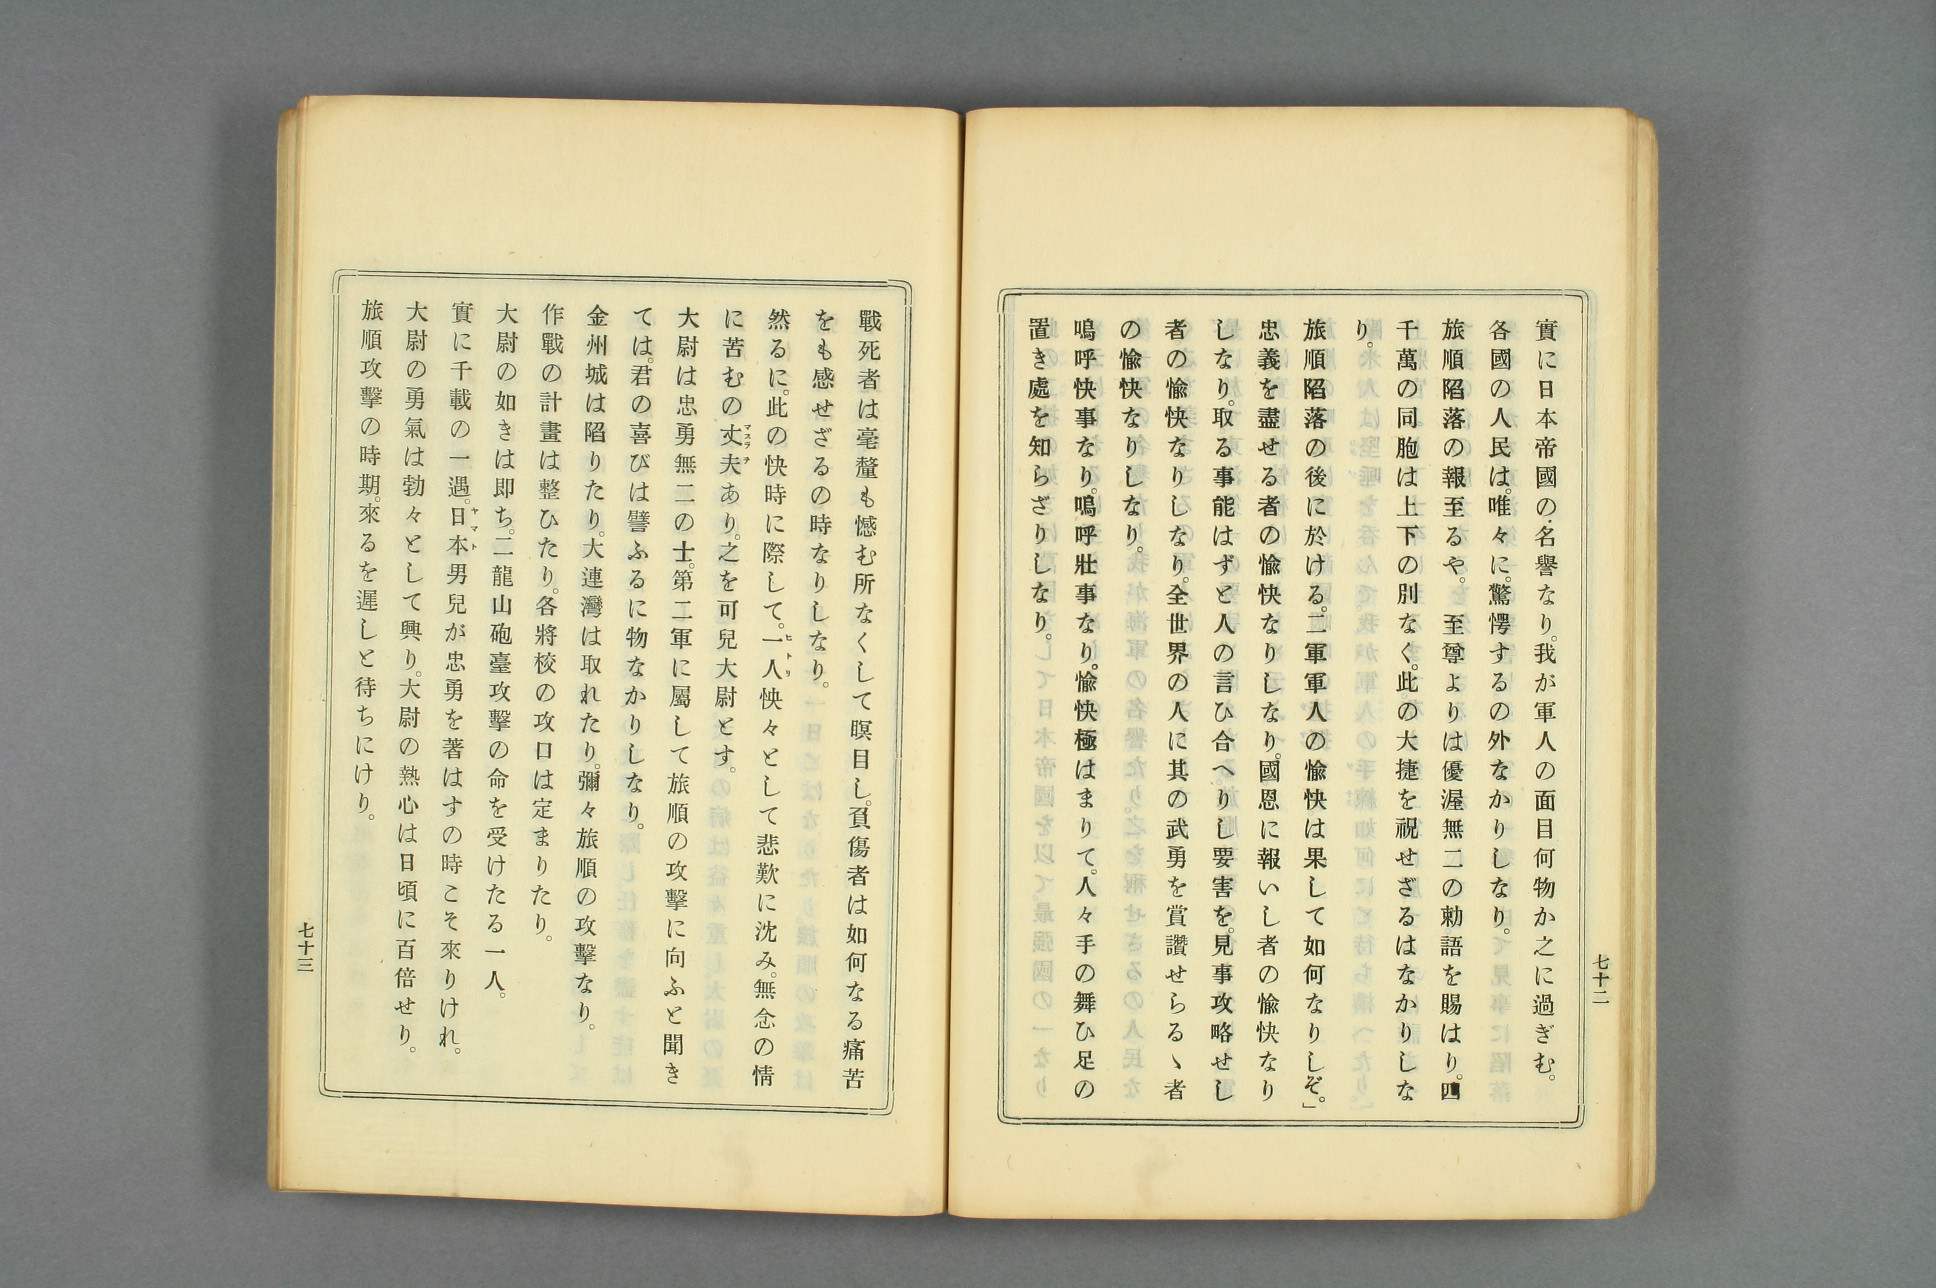 七十二
實に日本帝國の名譽なり。我が軍人の面目何物か之に過ぎむ。
各國の人民は。唯々に。驚愕するの外なかりしなり。
旅順陷落の報至るや。　至尊よりは優渥無二の勅語を賜はり。四
千萬の同胞は上下の別なく。此の大捷を祝せざるはなかりしな
り。
旅順陷落の後に於ける。二軍軍人の愉快は果して如何なりしぞ。」
忠義を盡せる者の愉快なりしなり。國恩に報いし者の愉快なり
しなり。取る事能はずと人の言ひ合へりし要害を。見事攻略せし
者の愉快なりしなり。全世界の人に其の武勇を賞讚せらるゝ者
の愉快なりしなり。
嗚呼快事なり。嗚呼壯事なり。愉快極はまりて。人々手の舞ひ足の
置き處を知らざりしなり。
戰死者は毫釐も憾む所なくして瞑目し。負傷者は如何なる痛苦
をも感せざるの時なりしなり。
然るに。此の快時に際して。一人怏々として悲歎に沈み。無念の情
ヒトリ
に苦むの丈夫あり。之を可兒大尉とす。
マスラヲ
大尉は忠勇無二の士。第二軍に屬して旅順の攻擊に向ふと聞き
ては。君の喜びは譬ふるに物なかりしなり。
金州城は陷りたり。大連灣は取れたり。彌々旅順の攻擊なり。
作戰の計畫は整ひたり。各將校の攻口は定まりたり。
大尉の如きは即ち。二龍山砲臺攻擊の命を受けたる一人。
實に千載の一遇。日本男兒が忠勇を著はすの時こそ來りけれ。
ヤマト
大尉の勇氣は勃々として興り。大尉の熱心は日頃に百倍せり。
旅順攻擊の時期。來るを遲しと待ちにけり。
七十三